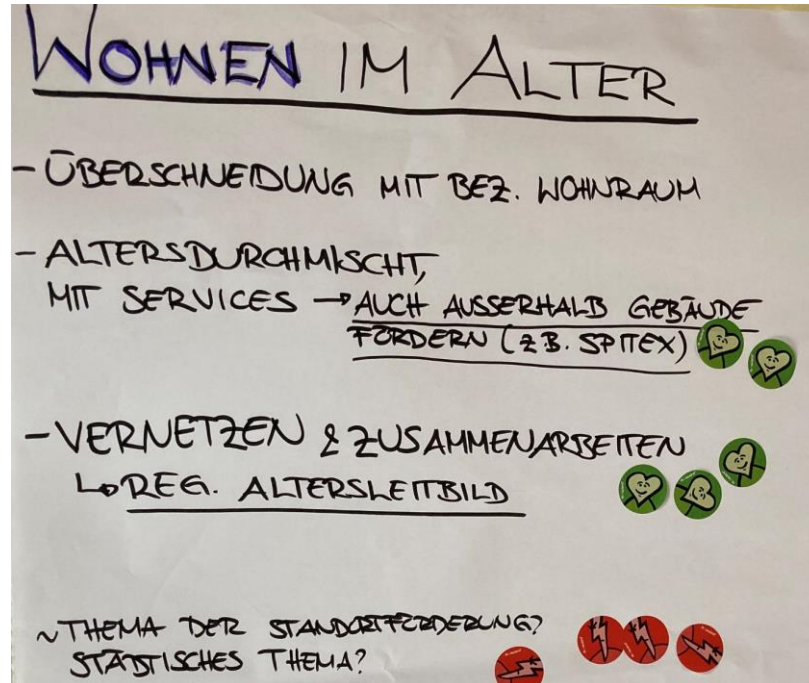 WOHNEN IM ALTER
- ÜBERSCHNEIDUNG MIT BEZ. WOHNRAUM
- ALTERSDURCHMISCHT,
MIT SERVICES → AUCH AUSSERHALB GEBÄUDE
FÖRDERN (Z.B. SPITEX)
- VERNETZEN & ZUSAMMENARBEITEN
↳ REG. ALTERSLEITBILD
~ THEMA DER STANDORTFÖRDERUNG?
STÄDTISCHES THEMA?